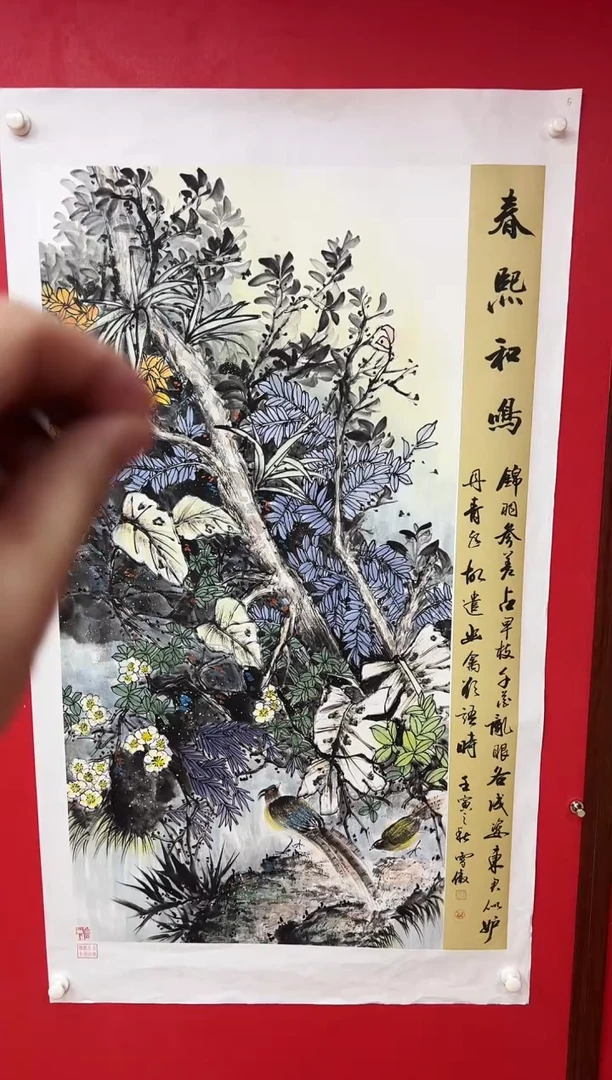 春熙和鳴
錦羽參差占早枝千花亂眼各成姿東君似妒
丹青 故遣幽禽欲語時 壬寅之秋 雪傲